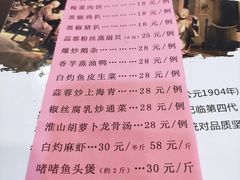 梅菜肉饼……18 元/例
黑椒鸡扒……18 元/例
黑椒猪扒……18 元/例
蒜蓉粉丝蒸扇贝 25 元/例
爆炒鹅杂……28 元/例
香芋蒸油鸭……28 元/例
白灼鱼皮生菜…28 元/例
蒜蓉炒上海青…28 元/例
椒丝腐乳炒通菜…28 元/例
淮山胡萝卜龙骨汤…28 元/例
白灼麻虾…30 元/半斤 58 元/斤
啫啫鱼头煲(约2斤)…30 元/斤
公元1904年)
记临第四代
统对品质坚